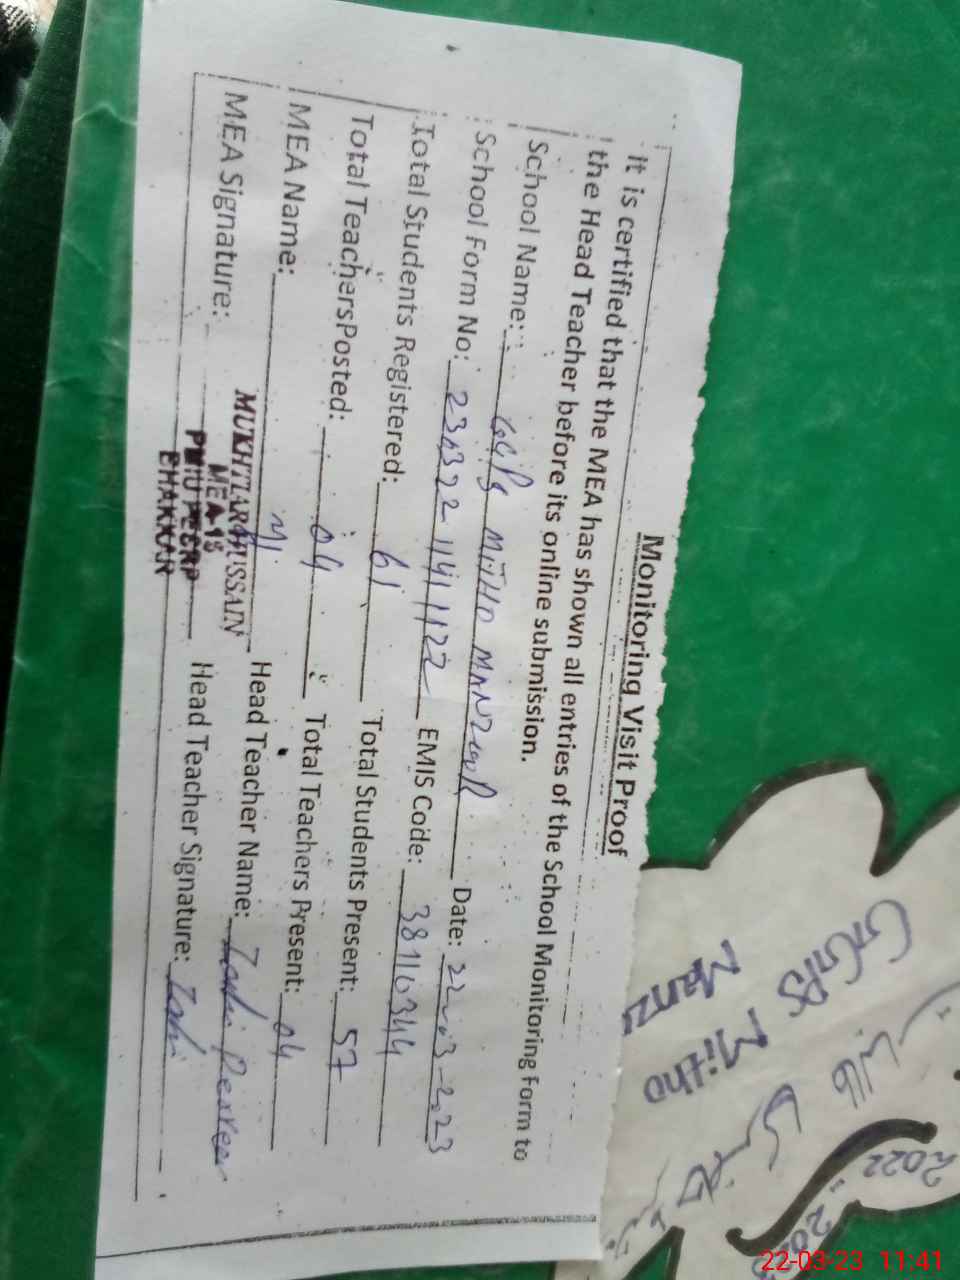 Monitoring Visit Proof
It is certified that the MEA has shown all entries of the School Monitoring Form to
the Head Teacher before its online submission.
School Name: GGPS MITHO MANZOOR Date: 22-03-2023
School Form No: 230322 1141 1122 EMIS Code: 38110344
Total Students Registered: 61 Total Students Present: 57
Total TeachersPosted: 04 Total Teachers Present: 04
MEA Name: Head Teacher Name:
MEA Signature: Head Teacher Signature:
MUKHTIAR HUSSAIN
MEA-18
PMIU PESRP
BHAKKAR
GGPS Mitho
2022
22-03-23 11:41